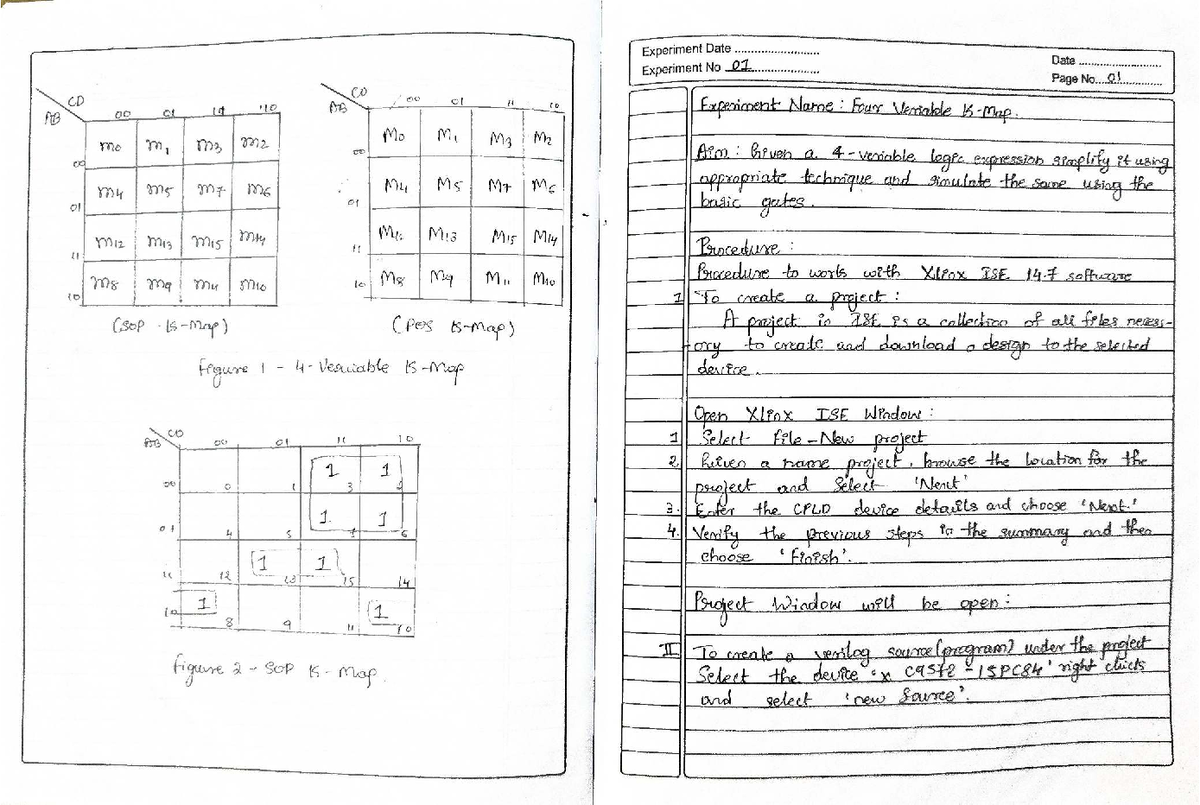 CD
AB 00 01 11 10
00 m0 m1 m3 m2
01 m4 m5 m7 m6
11 m12 m13 m15 m14
10 m8 m9 m11 m10
(SOP K-Map)
CD
AB 00 01 11 10
00 M0 M1 M3 M2
01 M4 M5 M7 M6
11 M12 M13 M15 M14
10 M8 M9 M11 M10
(POS K-Map)
Figure 1 - 4-Veriable K-Map
CD
AB 00 01 11 10
1 1
00 0 1 3 2
1 1
01 4 5 7 6
1 1
11 12 13 15 14
1 1
10 8 9 11 10
Figure 2 - SOP K-Map.
Experiment Date
Experiment No 01
Date
Page No. 01
Experiment Name : Four Veriable K-Map.
Aim : Given a 4-veriable logic expression simplify it using
appropriate technique and simulate the same using the
basic gates.
Procedure :
Procedure to work with Xlinx ISE 14.7 software
I To create a project :
A project in ISE is a collection of all files necess-
ary to create and download a design to the selected
device.
Open Xlinx ISE Window :
1 Select file - New project
2 Given a name project, browse the location for the
project and Select 'Next'
3. Enter the CPLD device details and choose 'Next.'
4. Verify the previous steps in the summary and then
choose 'finish'.
Project Window will be open :
II To create a verilog source (program) under the project
Select the device 'x C9572 - 15PC84' right click
and select 'new Source'.